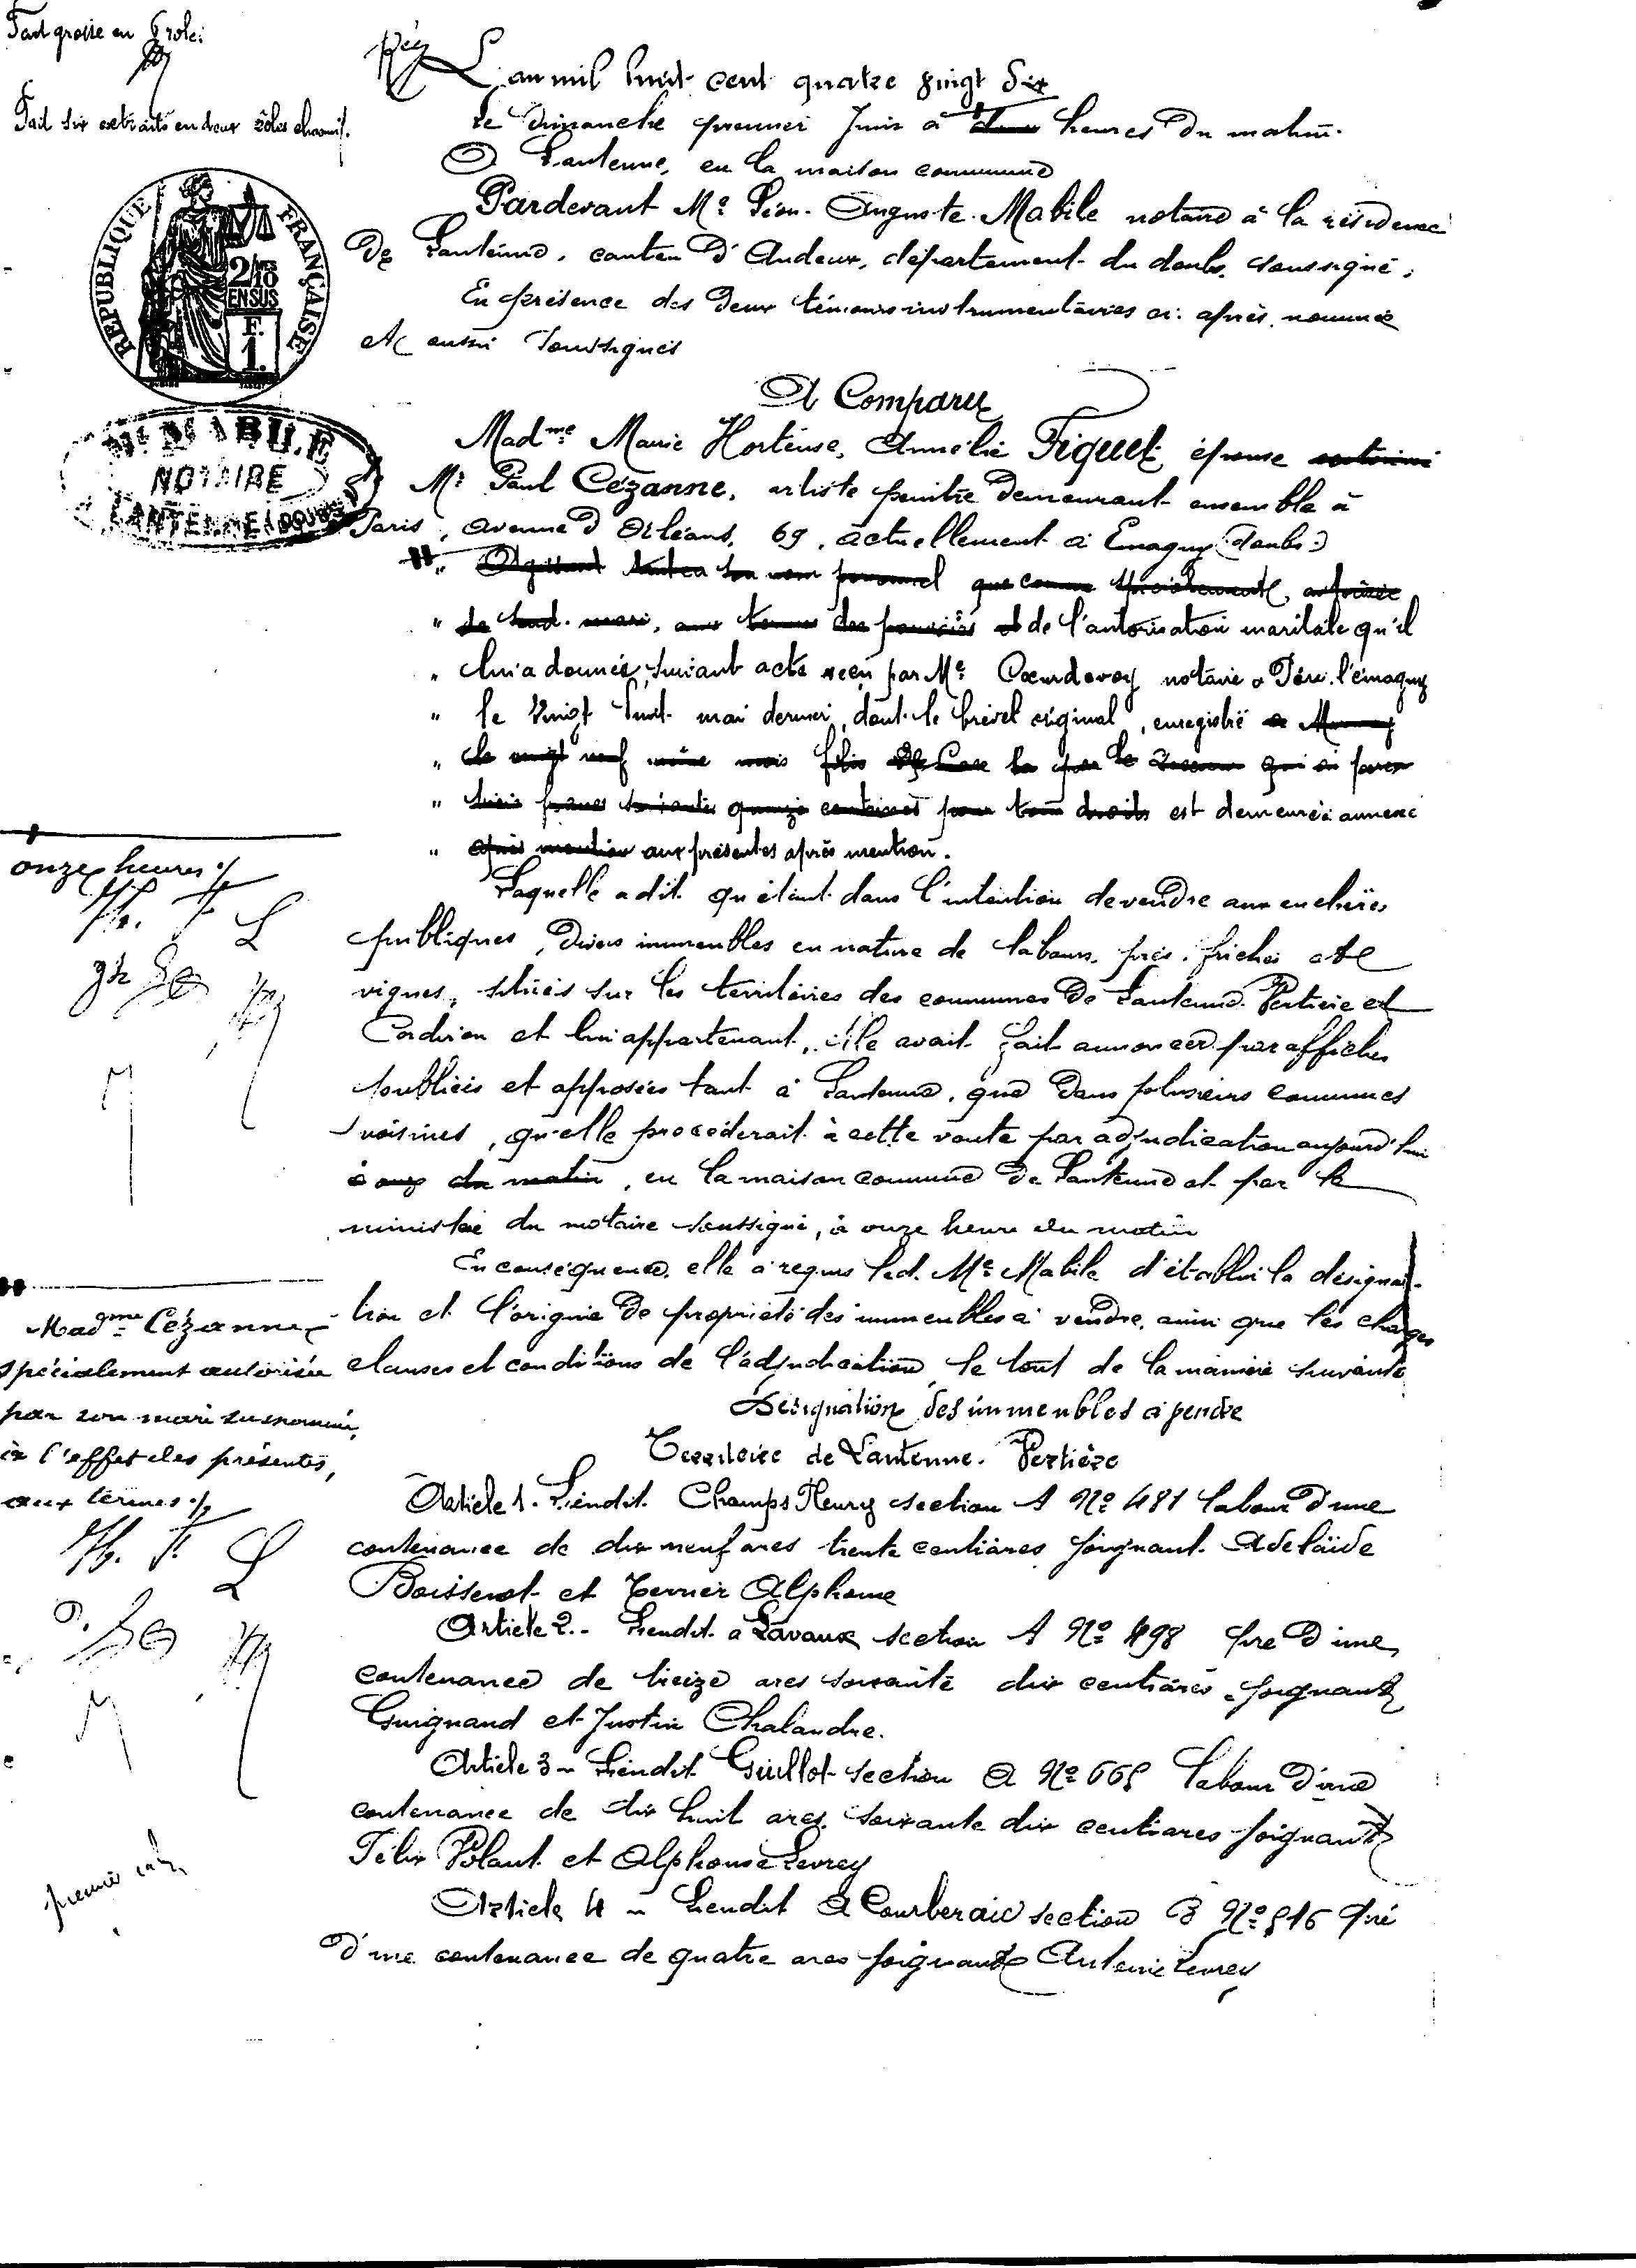 Fait grosse en 6 roles
Fait six extraits en deux rôles chacun.
RÉPUBLIQUE FRANÇAISE
2/10
EN SUS
F.
1.
Me MABILE
NOTAIRE
LANTENNE (DOUBS)
L'an mil huit cent quatre vingt dix
Le dimanche premier Juin à heures du matin.
A Lantenne, en la maison commune
Pardevant Me Léon-Auguste Mabile notaire à la résidence
de Lantenne, canton d'Audeux, département du doubs, soussigné,
En présence des deux témoins instrumentaires ci-après nommés
et aussi soussignés
A Comparu
Madme Marie Hortense, Amélie Fiquet épouse
Mr Paul Cézanne, artiste peintre demeurant ensemble à
Paris, avenue d'Orléans, 69, actuellement à Emagny (doubs)
" Agissant tant en son nom personnel que comme spécialement autorisée
" de sond. mari, aux termes des pouvoirs et de l'autorisation maritale qu'il
" lui a donnée, suivant acte reçu par Me Coeurdevoy notaire à l'émagny
" le vingt huit mai dernier, dont le brevet original, enregistré
" le vingt neuf même mois folio
" trois francs soixante quinze centimes pour tous droits est demeuré annexé
" après mention aux présentes après mention.
Laquelle a dit qu'étant dans l'intention de vendre aux enchères
publiques, divers immeubles en nature de labours, prés, friches et
vignes, situés sur les territoires des communes de Lantenne-Vertière et
Cordiron et lui appartenant, elle avait fait annoncer par affiches
publiées et apposées tant à Lantenne, que dans plusieurs communes
voisines, qu'elle procéderait à cette vente par adjudication aujourd'hui
à onze du matin, en la maison commune de Lantenne et par le
ministère du notaire soussigné, à onze heure du matin
En conséquence, elle a requis led. Me Mabile d'établir la désigna-
tion et l'origine de propriété des immeubles à vendre, ainsi que les charges
clauses et conditions de l'adjudication, le tout de la manière suivante
Désignation des immeubles à vendre
Territoire de Lantenne-Vertière
Article 1. Liendit Champs Fleury section A No 481 labour d'une
contenance de dix neuf ares trente centiares joignant Adelaïde
Boissenot et Terrier Alphonse
Article 2. - Liendit à Lavaux section A No 498 pré d'une
contenance de treize ares soixante dix centiares joignant
Guignand et Justin Chalandre.
Article 3 - Liendit Guillot section A No 665 labour d'une
contenance de dix huit ares soixante dix centiares joignant
Félix Polant et Alphonse Levrey
Article 4 - Liendit A Courberaie section B No 516 pré
d'une contenance de quatre ares joignant Antoine Levrey
onze heures ./.
Madme Cézanne
spécialement autorisée
par son mari susnommé,
à l'effet des présentes,
aux termes ./.
premier